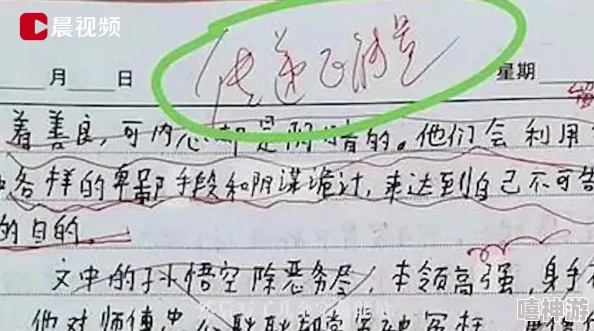 晨视频
月 日 传递正能量 星期
着善良,可内心却是阴暗的。他们会利用
各样的卑鄙手段和阴谋诡计,来达到自己不可告
的目的。
文中的孙悟空除恶务尽,本领高强,身手
他对师傅忠心耿耿
嘻神游